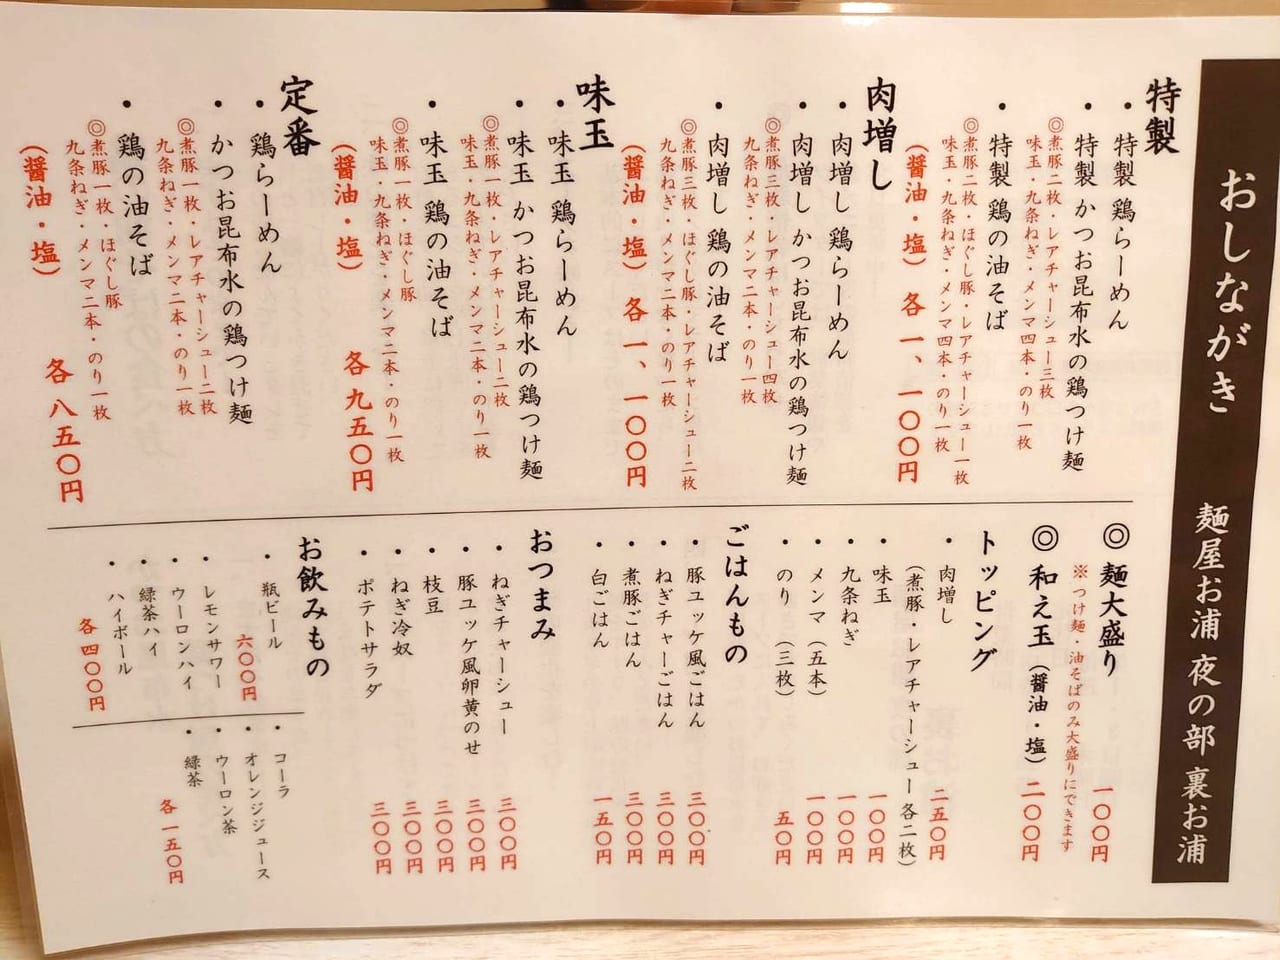 おしながき 麺屋お浦 夜の部 裏お浦
特製
・特製 鶏らーめん
・特製 かつお昆布水の鶏つけ麺
◎煮豚二枚・レアチャーシュー三枚
味玉・九条ねぎ・メンマ四本・のり一枚
・特製 鶏の油そば
◎煮豚二枚・ほぐし豚・レアチャーシュー一枚
味玉・九条ねぎ・メンマ四本・のり一枚
(醤油・塩) 各 一、一〇〇円
肉増し
・肉増し 鶏らーめん
・肉増し かつお昆布水の鶏つけ麺
◎煮豚三枚・レアチャーシュー四枚
九条ねぎ・メンマ二本・のり一枚
・肉増し 鶏の油そば
◎煮豚三枚・ほぐし豚・レアチャーシュー二枚
九条ねぎ・メンマ二本・のり一枚
(醤油・塩) 各 一、一〇〇円
味玉
・味玉 鶏らーめん
・味玉 かつお昆布水の鶏つけ麺
◎煮豚一枚・レアチャーシュー二枚
味玉・九条ねぎ・メンマ二本・のり一枚
・味玉 鶏の油そば
◎煮豚一枚・ほぐし豚
味玉・九条ねぎ・メンマ二本・のり一枚
(醤油・塩) 各 九五〇円
定番
・鶏らーめん
・かつお昆布水の鶏つけ麺
◎煮豚一枚・レアチャーシュー二枚
九条ねぎ・メンマ二本・のり一枚
・鶏の油そば
◎煮豚一枚・ほぐし豚
九条ねぎ・メンマ二本・のり一枚
(醤油・塩) 各 八五〇円
◎麺大盛り 一〇〇円
※つけ麺・油そばのみ大盛りにできます
◎和え玉(醤油・塩) 二〇〇円
トッピング
・肉増し 二五〇円
(煮豚・レアチャーシュー各二枚)
・味玉 一〇〇円
・九条ねぎ 一〇〇円
・メンマ(五本) 一〇〇円
・のり(三枚) 五〇円
ごはんもの
・豚ユッケ風ごはん 三〇〇円
・ねぎチャーごはん 三〇〇円
・煮豚ごはん 三〇〇円
・白ごはん 一五〇円
おつまみ
・ねぎチャーシュー 三〇〇円
・豚ユッケ風卵黄のせ 三〇〇円
・枝豆 三〇〇円
・ねぎ冷奴 三〇〇円
・ポテトサラダ 三〇〇円
お飲みもの
・瓶ビール 六〇〇円
・レモンサワー
・ウーロンハイ
・緑茶ハイ
・ハイボール
各 四〇〇円
・コーラ
・オレンジジュース
・ウーロン茶
・緑茶
各 一五〇円